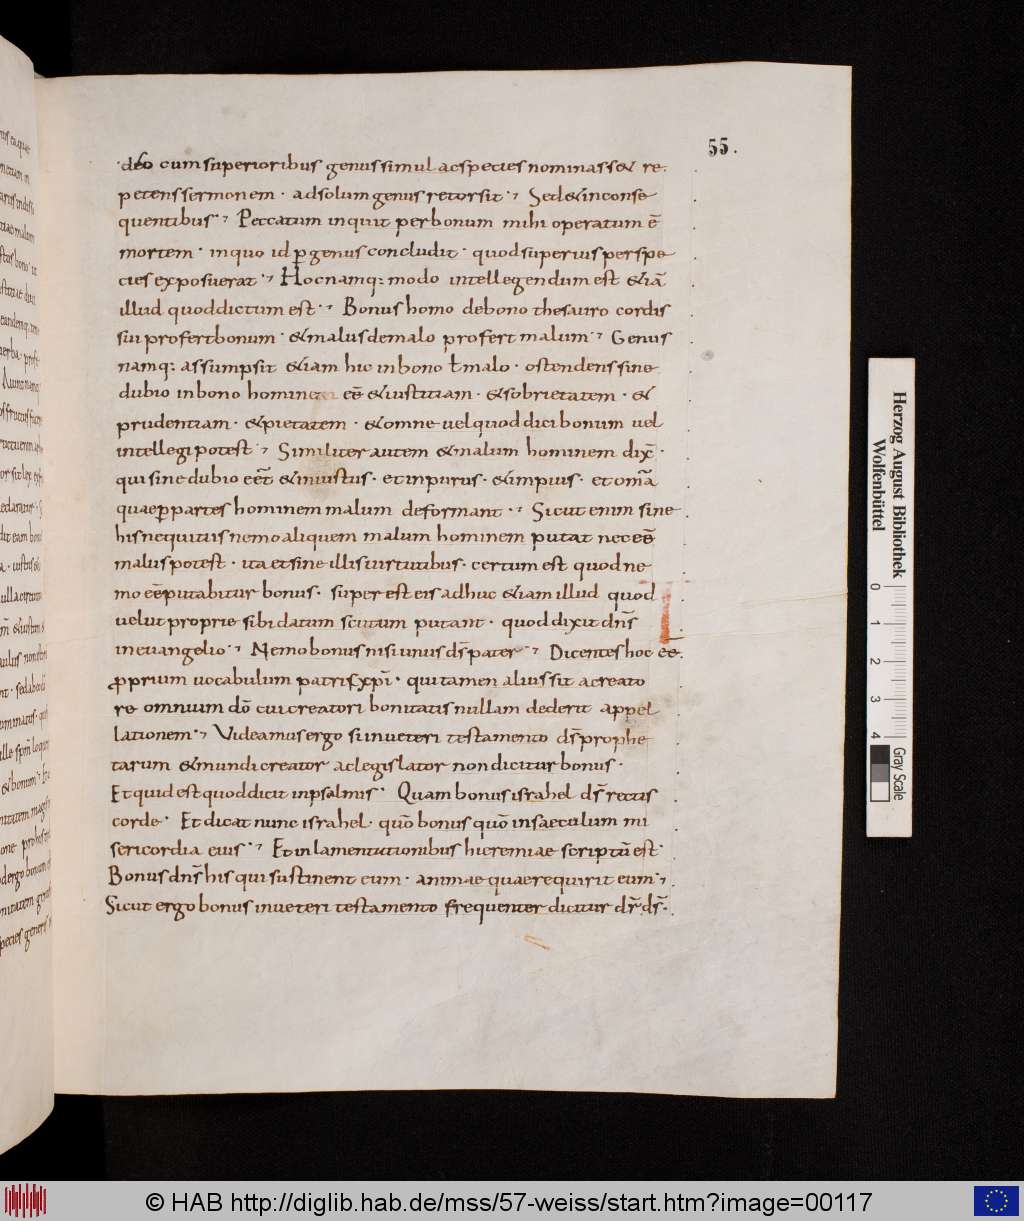 55.
ideo cum superioribus genus simul ac species nominass& re
petens sermonem · ad solum genus retorsit · Sed & in conse
quentibus · Peccatum inquit per bonum mihi operatum ē
mortem · in quo id ꝑ genus concludit · quod superius per spe
cies exposuerat · Hoc namq: modo intellegendum est &iā
illud quod dictum est · Bonus homo de bono thesauro cordis
sui profert bonum · & malus de malo profert malum · Genus
namq: assumpsit &iam hic in bono ł malo · ostendens sine
dubio in bono homine eē & iustitiam · & sobrietatem · &
prudentiam · & pietatem · & omne uel quod dici bonum uel
intellegi potest · Similiter autem & malum hominem dix̄ ·
qui sine dubio eēt & iniustus · et inpurus · & impius · et omā
quae ꝑ partes hominem malum deformant · Sicut enim sine
his nequitiis nemo aliquem malum hominem putat nec eē
malus potest · ita et sine illis uirtutibus · certum est quod ne
mo eē putabitur bonus · super est eis adhuc &iam illud quod
uelut proprie sibi datum scutum putant · quod dixit dn̄s
in euangelio · Nemo bonus nisi unus dս̄ pater · Dicentes hoc eē
ꝓprium uocabulum patris xp̄i · qui tamen alius sit a creato
re omnium dō cui creatori bonitatis nullam dederit appel
lationem · Videamus ergo si in ueteri testamento ds̄ prophe
tarum & mundi creator ac legislator non dicitur bonus ·
Et quid est quod dicit in psalmis · Quam bonus israhel ds̄ rectis
corde · Et dicat nunc israhel · quō bonus quō in saeculum mi
sericordia eius · Et in lamentationibus hieremiae scriptū est ·
Bonus dn̄s his qui sustinent eum · animae quae requirit eum ·
Sicut ergo bonus in ueteri testamento frequenter dicitur ds̄ ·
Herzog August Bibliothek
Wolfenbüttel
0 1 2 3 4
Gray Scale
© HAB http://diglib.hab.de/mss/57-weiss/start.htm?image=00117